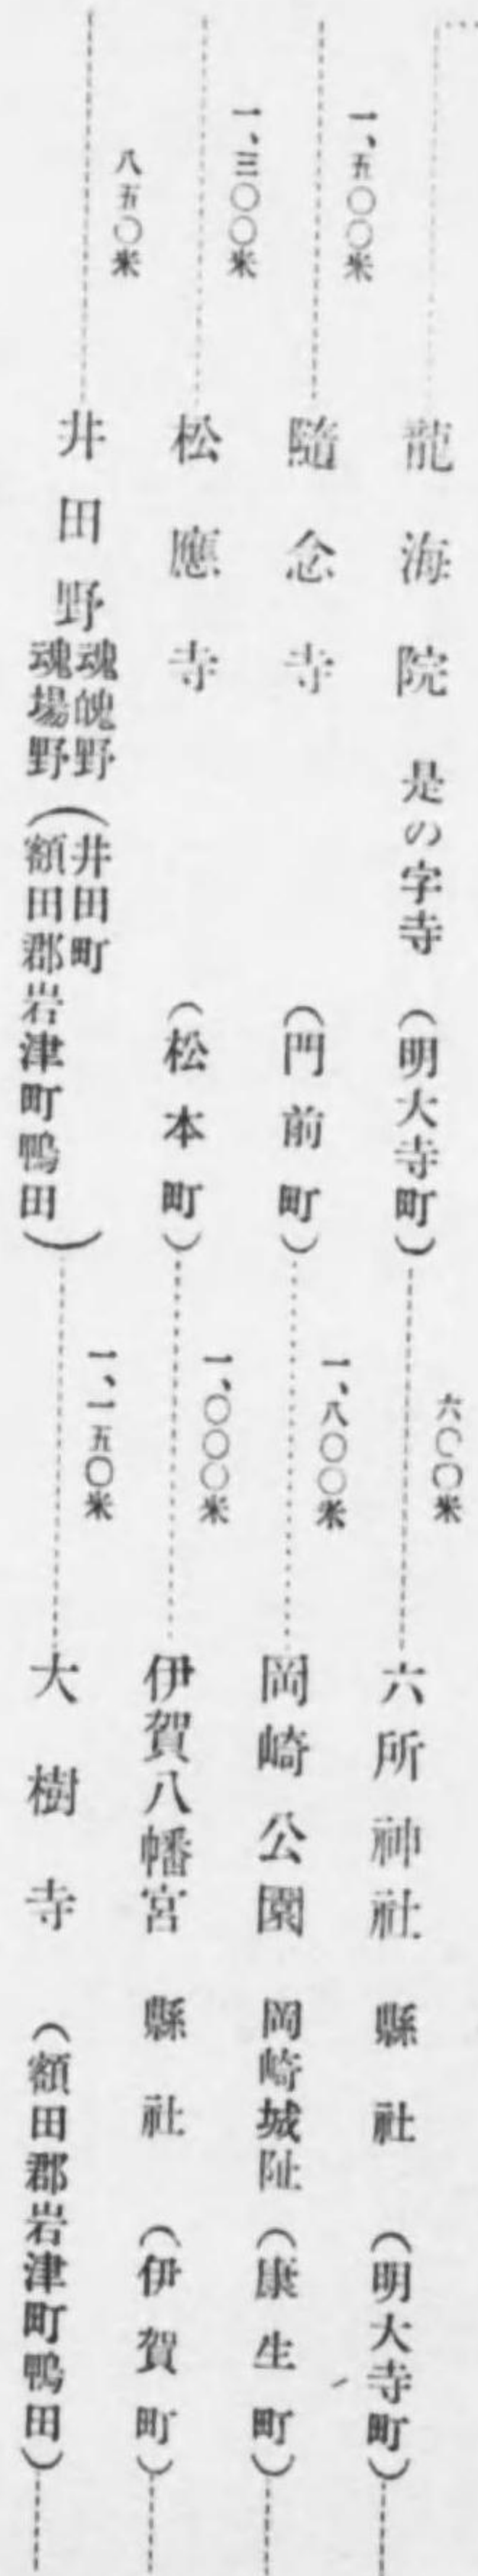 龍海院 是の字寺 (明大寺町)
六〇〇米
六所神社 縣社 (明大寺町)
一、五〇〇米
隨念寺 (門前町)
一、八〇〇米
岡崎公園 岡崎城址 (康生町)
一、三〇〇米
松應寺 (松本町)
一、〇〇〇米
伊賀八幡宮 縣社 (伊賀町)
八五〇米
井田野 魂魄野 魂場野 (井田町 額田郡岩津町鴨田)
一、一五〇米
大樹寺 (額田郡岩津町鴨田)